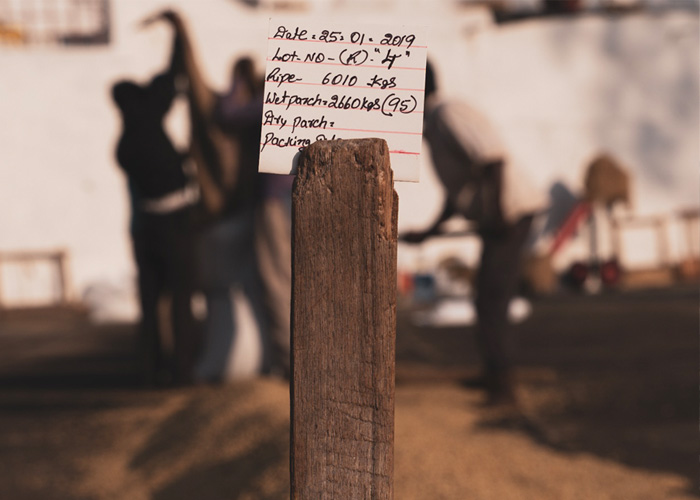 Date = 25 = 01 = 2019
Lot-NO - (R) - "4"
Ripe - 6010 kgs
Wet parch = 2660kgs (95)
Dry parch =
Packing